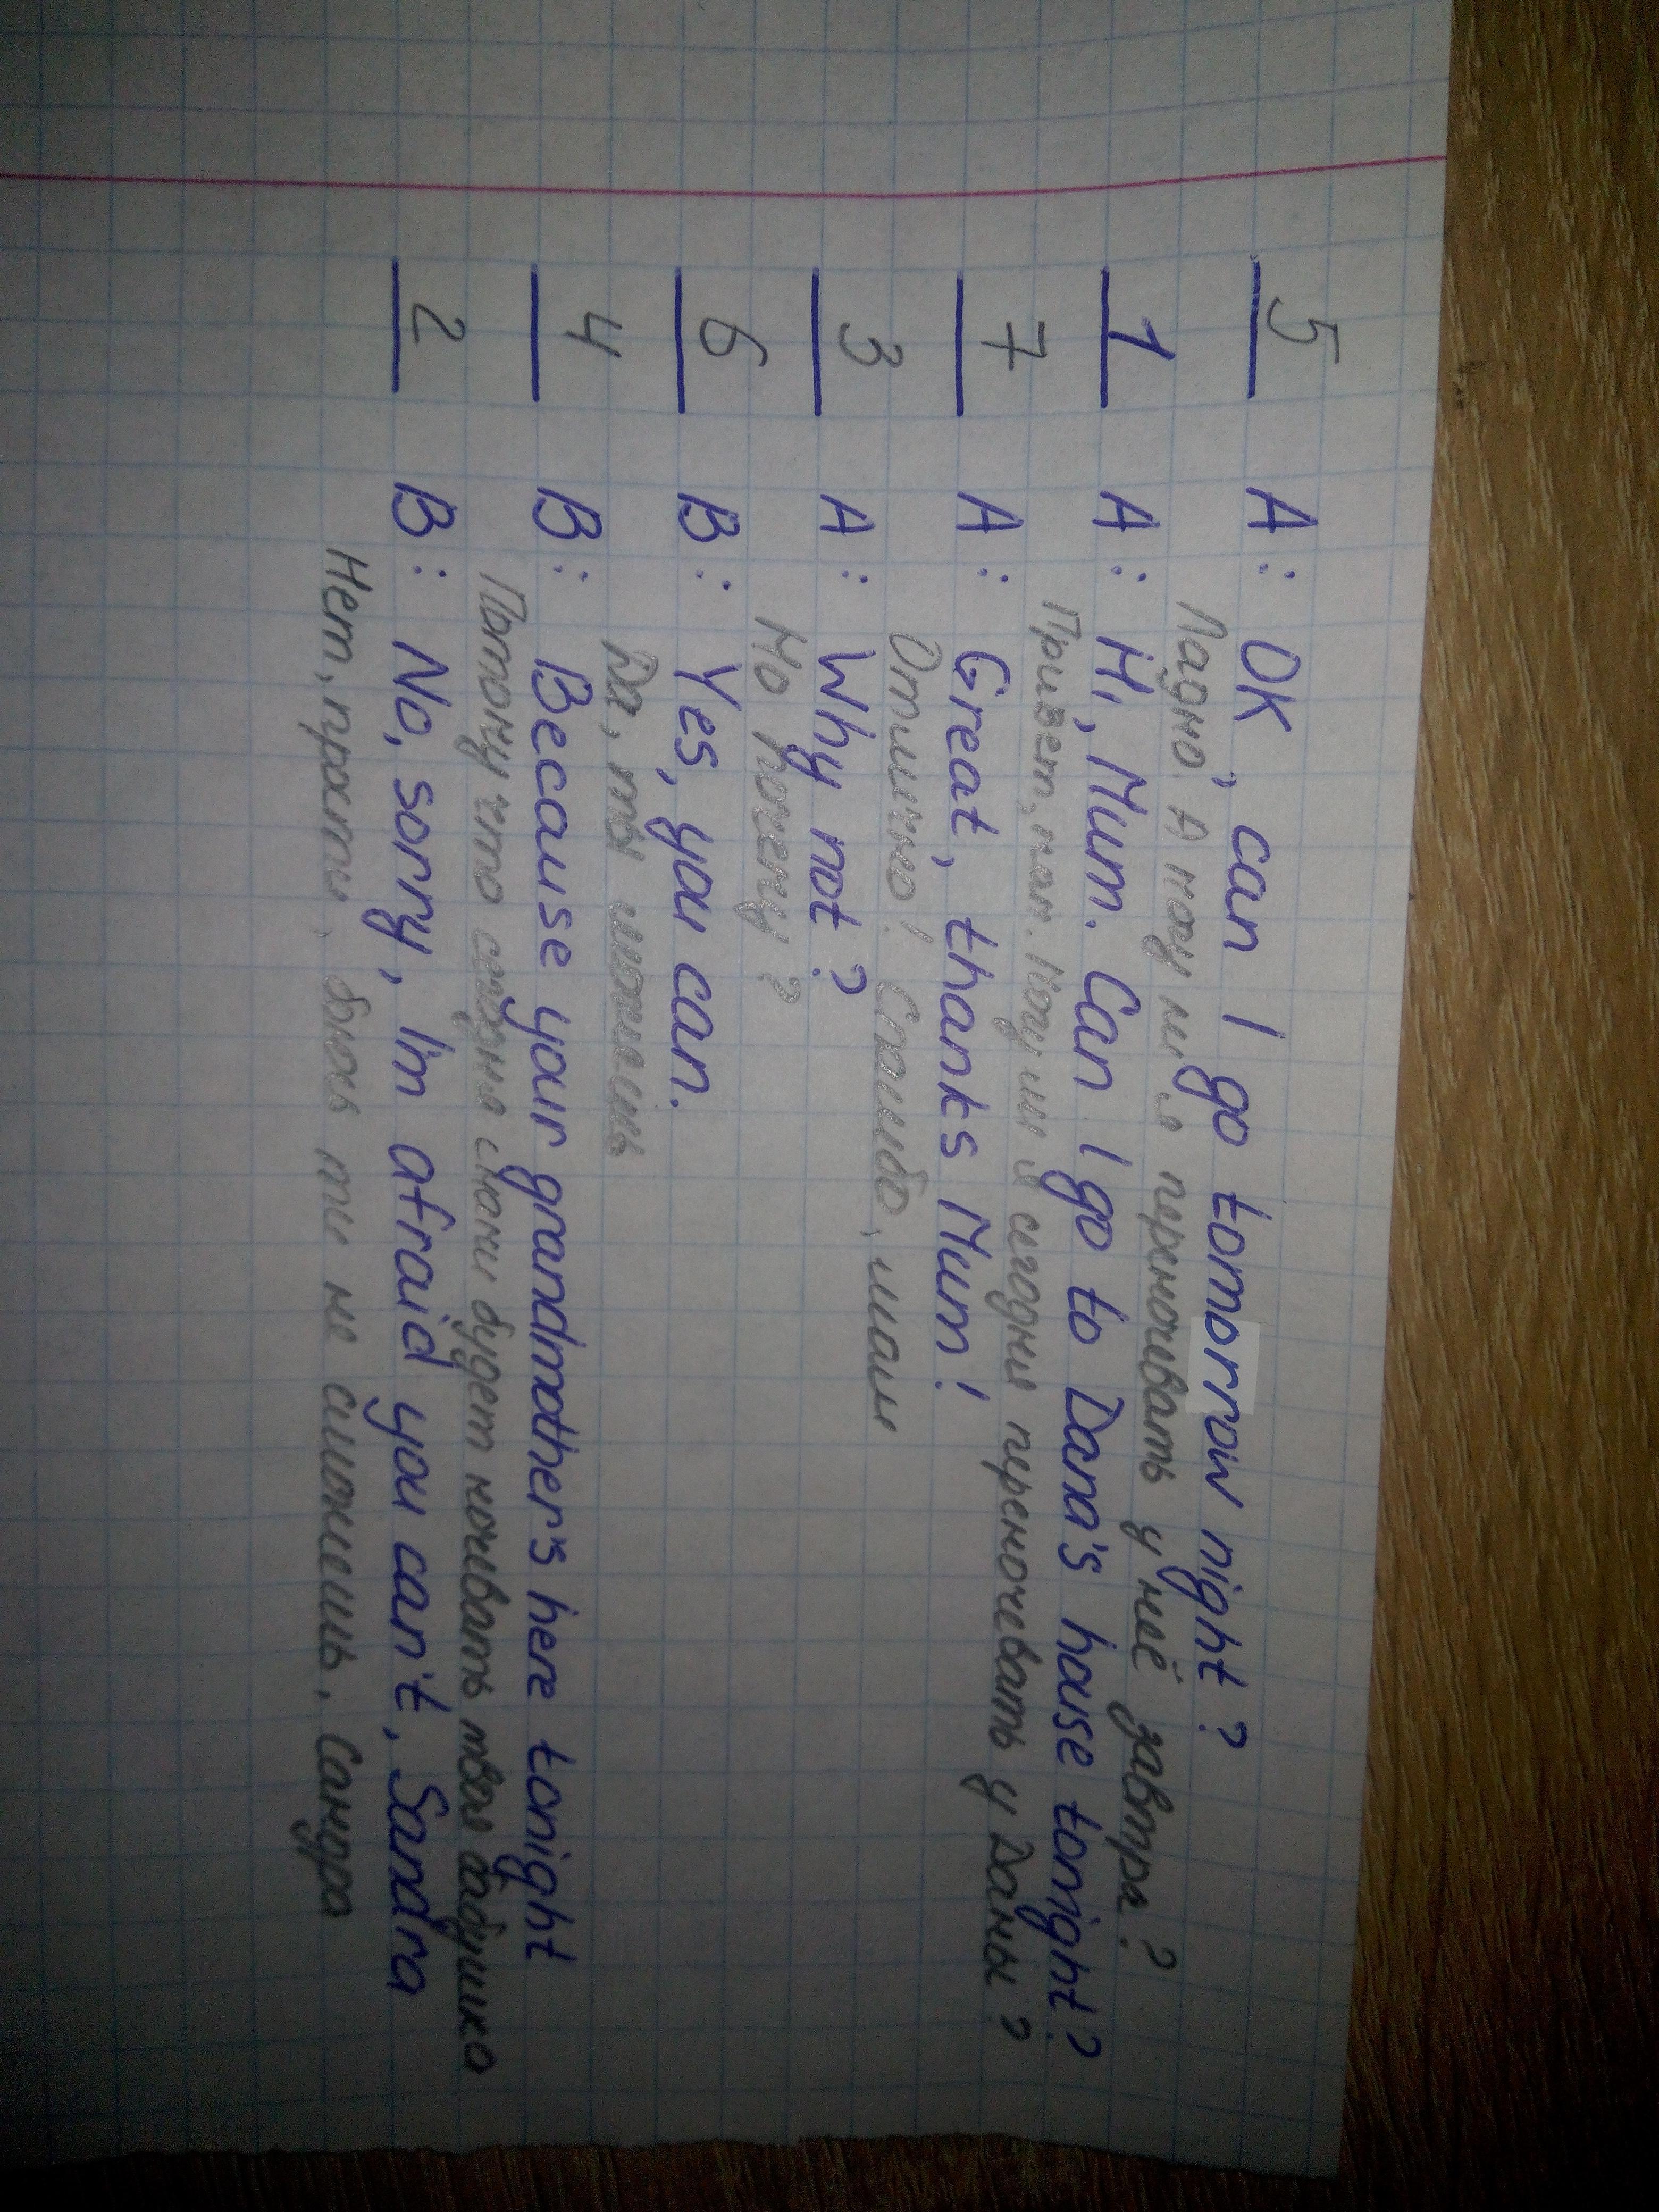 5 A: OK, can I go tomorrow night?
Ладно. А могу ли я переночевать у неё завтра?
1 A: Hi, Mum. Can I go to Dana's house tonight?
Привет, мам. Могу ли я сегодня переночевать у Даны?
7 A: Great, thanks Mum!
Отлично! Спасибо, мам
3 A: Why not?
Но почему?
6 B: Yes, you can.
Да, ты можешь
4 B: Because your grandmother's here tonight
Потому что сегодня с нами будет ночевать твоя бабушка
2 B: No, sorry, I'm afraid you can't, Sandra
Нет, прости, боюсь ты не сможешь, Сандра